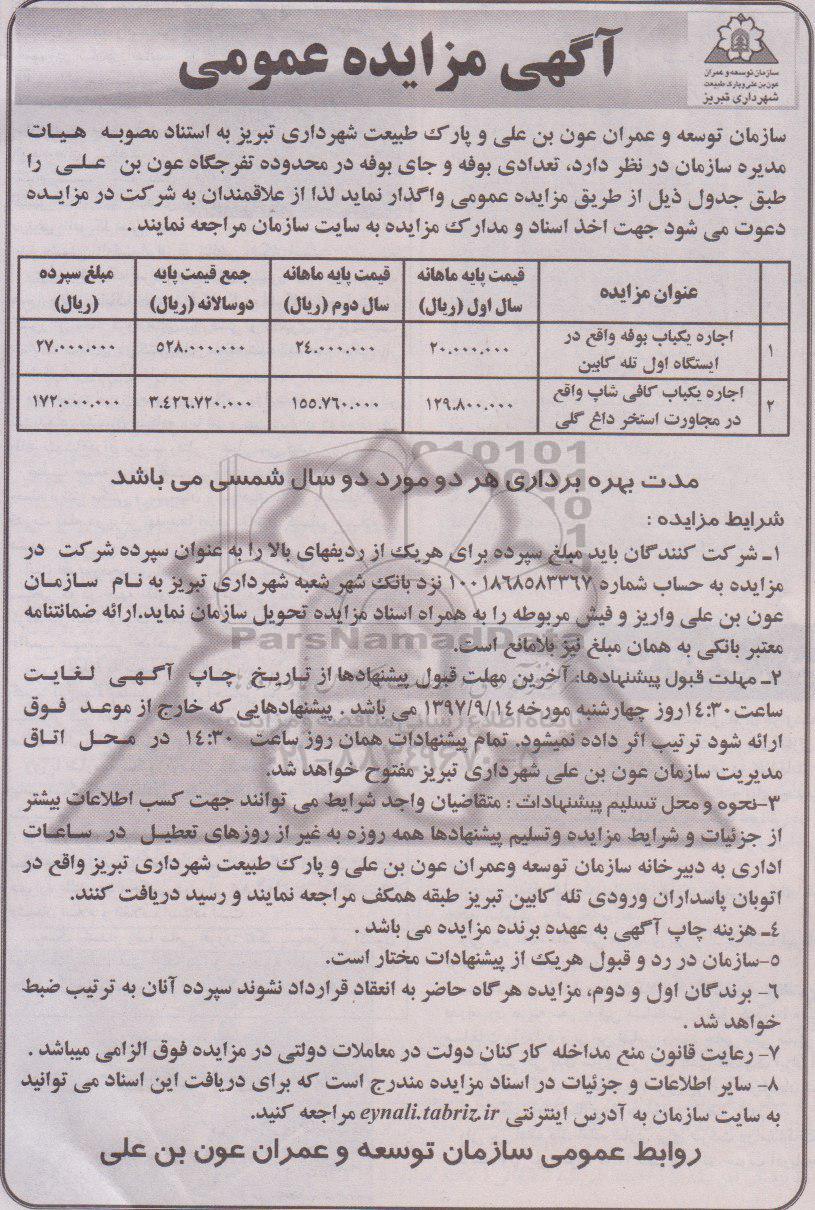 آگهی مزایده عمومی
سازمان توسعه و عمران
عون بن علی و پارک طبیعت
شهرداری تبریز
سازمان توسعه و عمران عون بن علی و پارک طبیعت شهرداری تبریز به استناد مصوبه هیات
مدیره سازمان در نظر دارد، تعدادی بوفه و جای بوفه در محدوده تفرجگاه عون بن علی را
طبق جدول ذیل از طریق مزایده عمومی واگذار نماید لذا از علاقمندان به شرکت در مزایده
دعوت می شود جهت اخذ اسناد و مدارک مزایده به سایت سازمان مراجعه نمایند .
عنوان مزایده | قیمت پایه ماهانه سال اول (ریال) | قیمت پایه ماهانه سال دوم (ریال) | جمع قیمت پایه دوسالانه (ریال) | مبلغ سپرده (ریال)
۱ | اجاره یکباب بوفه واقع در ایستگاه اول تله کابین | ۲۰.۰۰۰.۰۰۰ | ۲۴.۰۰۰.۰۰۰ | ۵۲۸.۰۰۰.۰۰۰ | ۲۷.۰۰۰.۰۰۰
۲ | اجاره یکباب کافی شاپ واقع در مجاورت استخر داغ گلی | ۱۲۹.۸۰۰.۰۰۰ | ۱۵۵.۷۶۰.۰۰۰ | ۳.۴۲۶.۷۲۰.۰۰۰ | ۱۷۲.۰۰۰.۰۰۰
مدت بهره برداری هر دو مورد دو سال شمسی می باشد
شرایط مزایده :
۱ـ شرکت کنندگان باید مبلغ سپرده برای هریک از ردیفهای بالا را به عنوان سپرده شرکت در
مزایده به حساب شماره ۱۰۰۱۸۶۸۵۸۳۳۶۷ نزد بانک شهر شعبه شهرداری تبریز به نام سازمان
عون بن علی واریز و فیش مربوطه را به همراه اسناد مزایده تحویل سازمان نماید.ارائه ضمانتنامه
معتبر بانکی به همان مبلغ نیز بلامانع است.
۲ـ مهلت قبول پیشنهادها: آخرین مهلت قبول پیشنهادها از تاریخ چاپ آگهی لغایت
ساعت۱۴:۳۰روز چهارشنبه مورخه۱۳۹۷/۹/۱۴ می باشد . پیشنهادهایی که خارج از موعد فوق
ارائه شود ترتیب اثر داده نمیشود. تمام پیشنهادات همان روز ساعت ۱۴:۳۰ در محل اتاق
مدیریت سازمان عون بن علی شهرداری تبریز مفتوح خواهد شد.
۳-نحوه و محل تسلیم پیشنهادات : متقاضیان واجد شرایط می توانند جهت کسب اطلاعات بیشتر
از جزئیات و شرایط مزایده وتسلیم پیشنهادها همه روزه به غیر از روزهای تعطیل در ساعات
اداری به دبیرخانه سازمان توسعه وعمران عون بن علی و پارک طبیعت شهرداری تبریز واقع در
اتوبان پاسداران ورودی تله کابین تبریز طبقه همکف مراجعه نمایند و رسید دریافت کنند.
۴ـ هزینه چاپ آگهی به عهده برنده مزایده می باشد .
۵-سازمان در رد و قبول هریک از پیشنهادات مختار است.
۶- برندگان اول و دوم، مزایده هرگاه حاضر به انعقاد قرارداد نشوند سپرده آنان به ترتیب ضبط
خواهد شد .
۷- رعایت قانون منع مداخله کارکنان دولت در معاملات دولتی در مزایده فوق الزامی میباشد .
۸- سایر اطلاعات و جزئیات در اسناد مزایده مندرج است که برای دریافت این اسناد می توانید
به سایت سازمان به آدرس اینترنتی eynali.tabriz.ir مراجعه کنید.
روابط عمومی سازمان توسعه و عمران عون بن علی
ParsNamadData